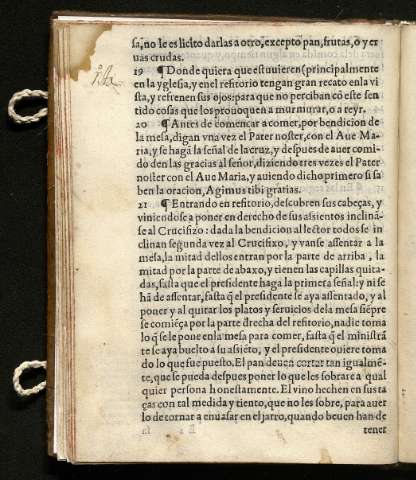 sa, no le es licito darlas a otro, excepto pan, frutas, o yer
uas crudas.
19 ¶ Donde quiera que estuuieren (principalmente
en la yglesia, y en el refitorio tengan gran recato en la vi
sta, y refrenen sus ojos: para que no perciban cō este sen
tido cosas que los prouoquen a murmurar, o a reyr.
20 ¶ Antes de comencar a comer, por bendicion de
la mesa, digan vna vez el Pater noster, con el Aue Ma-
ria, y se haga la señal de la cruz, y despues de auer comi-
do den las gracias al señor, diziendo tres vezes el Pater
noster con el Aue Maria, y auiendo dicho primero si sa
ben la oracion, Agimus tibi gratias.
21 ¶ Entrando en refitorio, descubren sus cabeças, y
viniendose a poner en derecho de sus assientos incliná-
se al Crucifixo: dada la bendicion al lector todos se in
clinan segunda vez al Crucifixo, y vanse assentar a la
mesa, la mitad dellos entran por la parte de arriba, la
mitad por la parte de abaxo, y tienen las capillas quita-
das, fasta que el presidente haga la primera señal: y ni se
hā de assentar, fasta q̄l presidente se aya assentado, y al
poner y al quitar los platos y seruicios dela mesa siēpre
se comiēça por la parte drecha del refitorio, nadie toma
lo q̄ se le pone enla mesa para comer, fasta q̄ el ministrā
te se aya buelto a su asiēto, y el presidente quiere toma
do lo que fue puesto. El pan deuen cortar tan igualmē-
te, que se pueda despues poner lo que les sobrare a qual
quier persona honestamente. El vino hechen en sus ta
ças con tal medida y tiento, que no les sobre, para auer
lo de tornar a enuasar en el jarro, quando beuen han de
tener